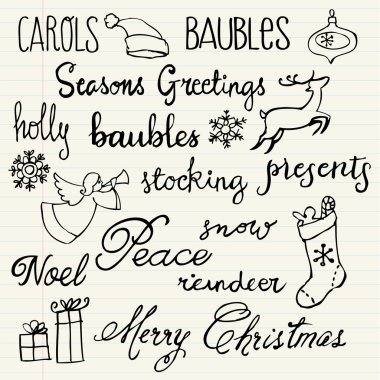 CAROLS BAUBLES
Seasons Greetings
holly baubles
stocking presents
snow
Peace
Noel reindeer
Merry Christmas